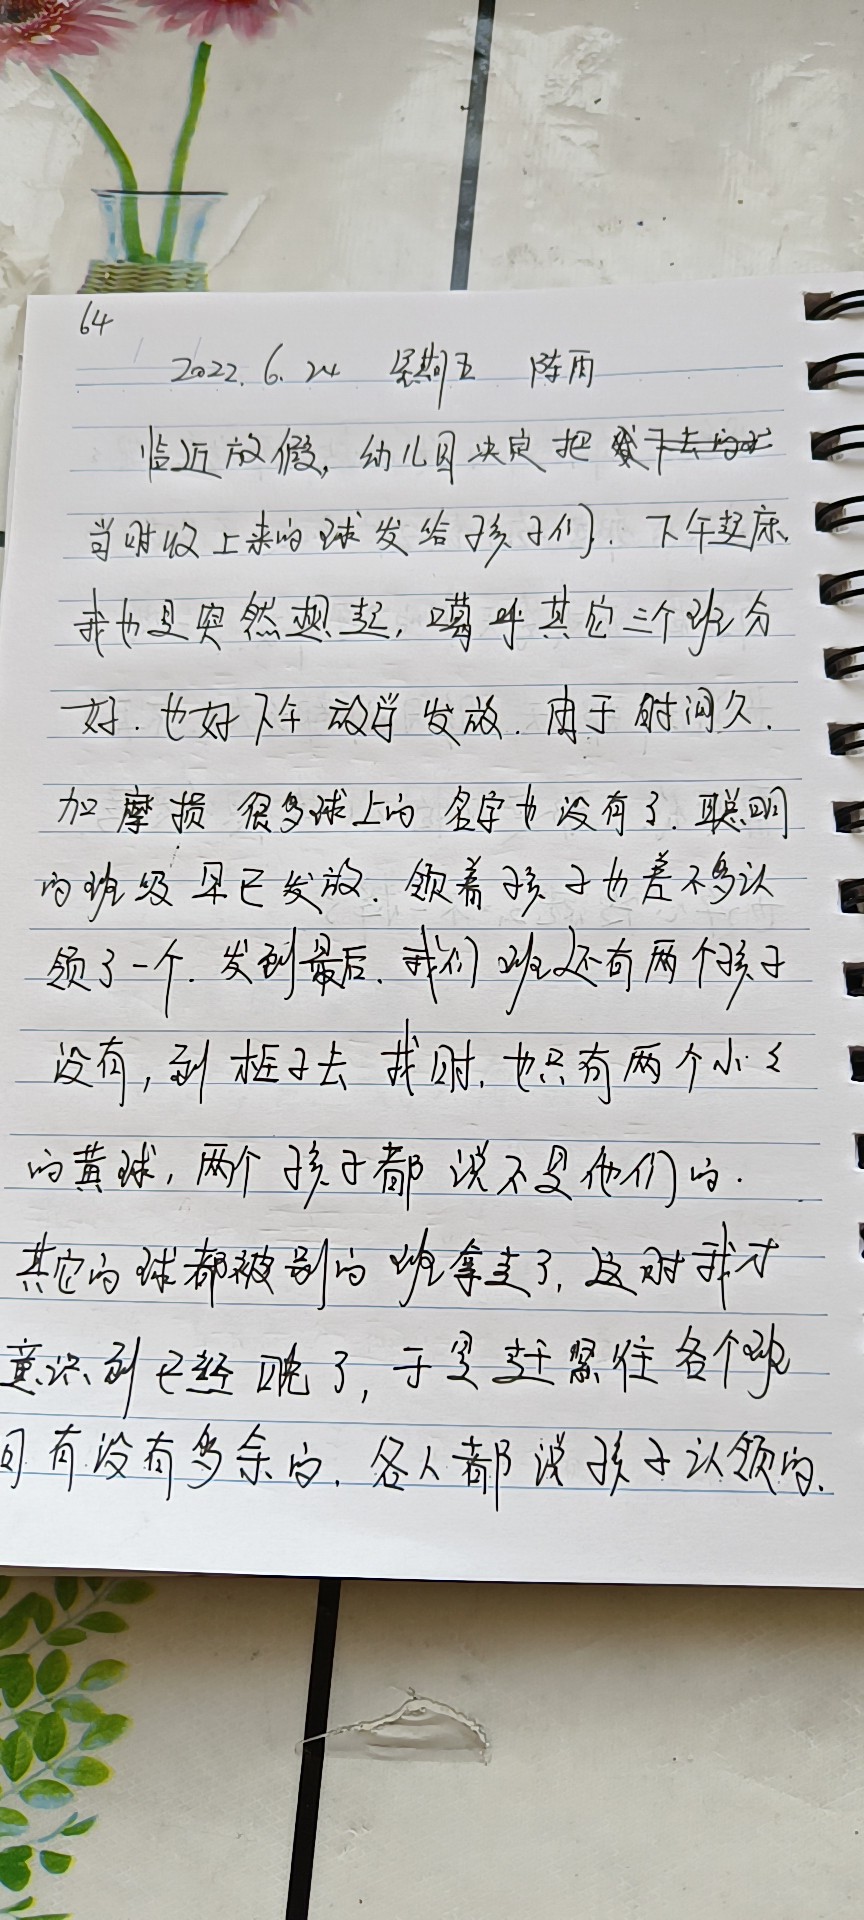 64
2022.6.24 星期五 阵雨
临近放假，幼儿园决定把
当时收上来的球发给孩子们. 下午起床,
我也是突然想起, 嘱呼其它三个班分
好. 也好下午放学发放. 由于时间久.
加摩损 很多球上的名字也没有了. 聪明
的班级早已发放. 领着孩子也差不多认
领了一个. 发到最后. 我们班还有两个孩子
没有, 到框子去找时. 也只有两个小小
的黄球, 两个孩子都说不是他们的.
其它的球都被别的班拿走了, 这时我才
意识到已经晚了, 于是赶紧往各个班
问有没有多余的. 各人都说孩子认领的.